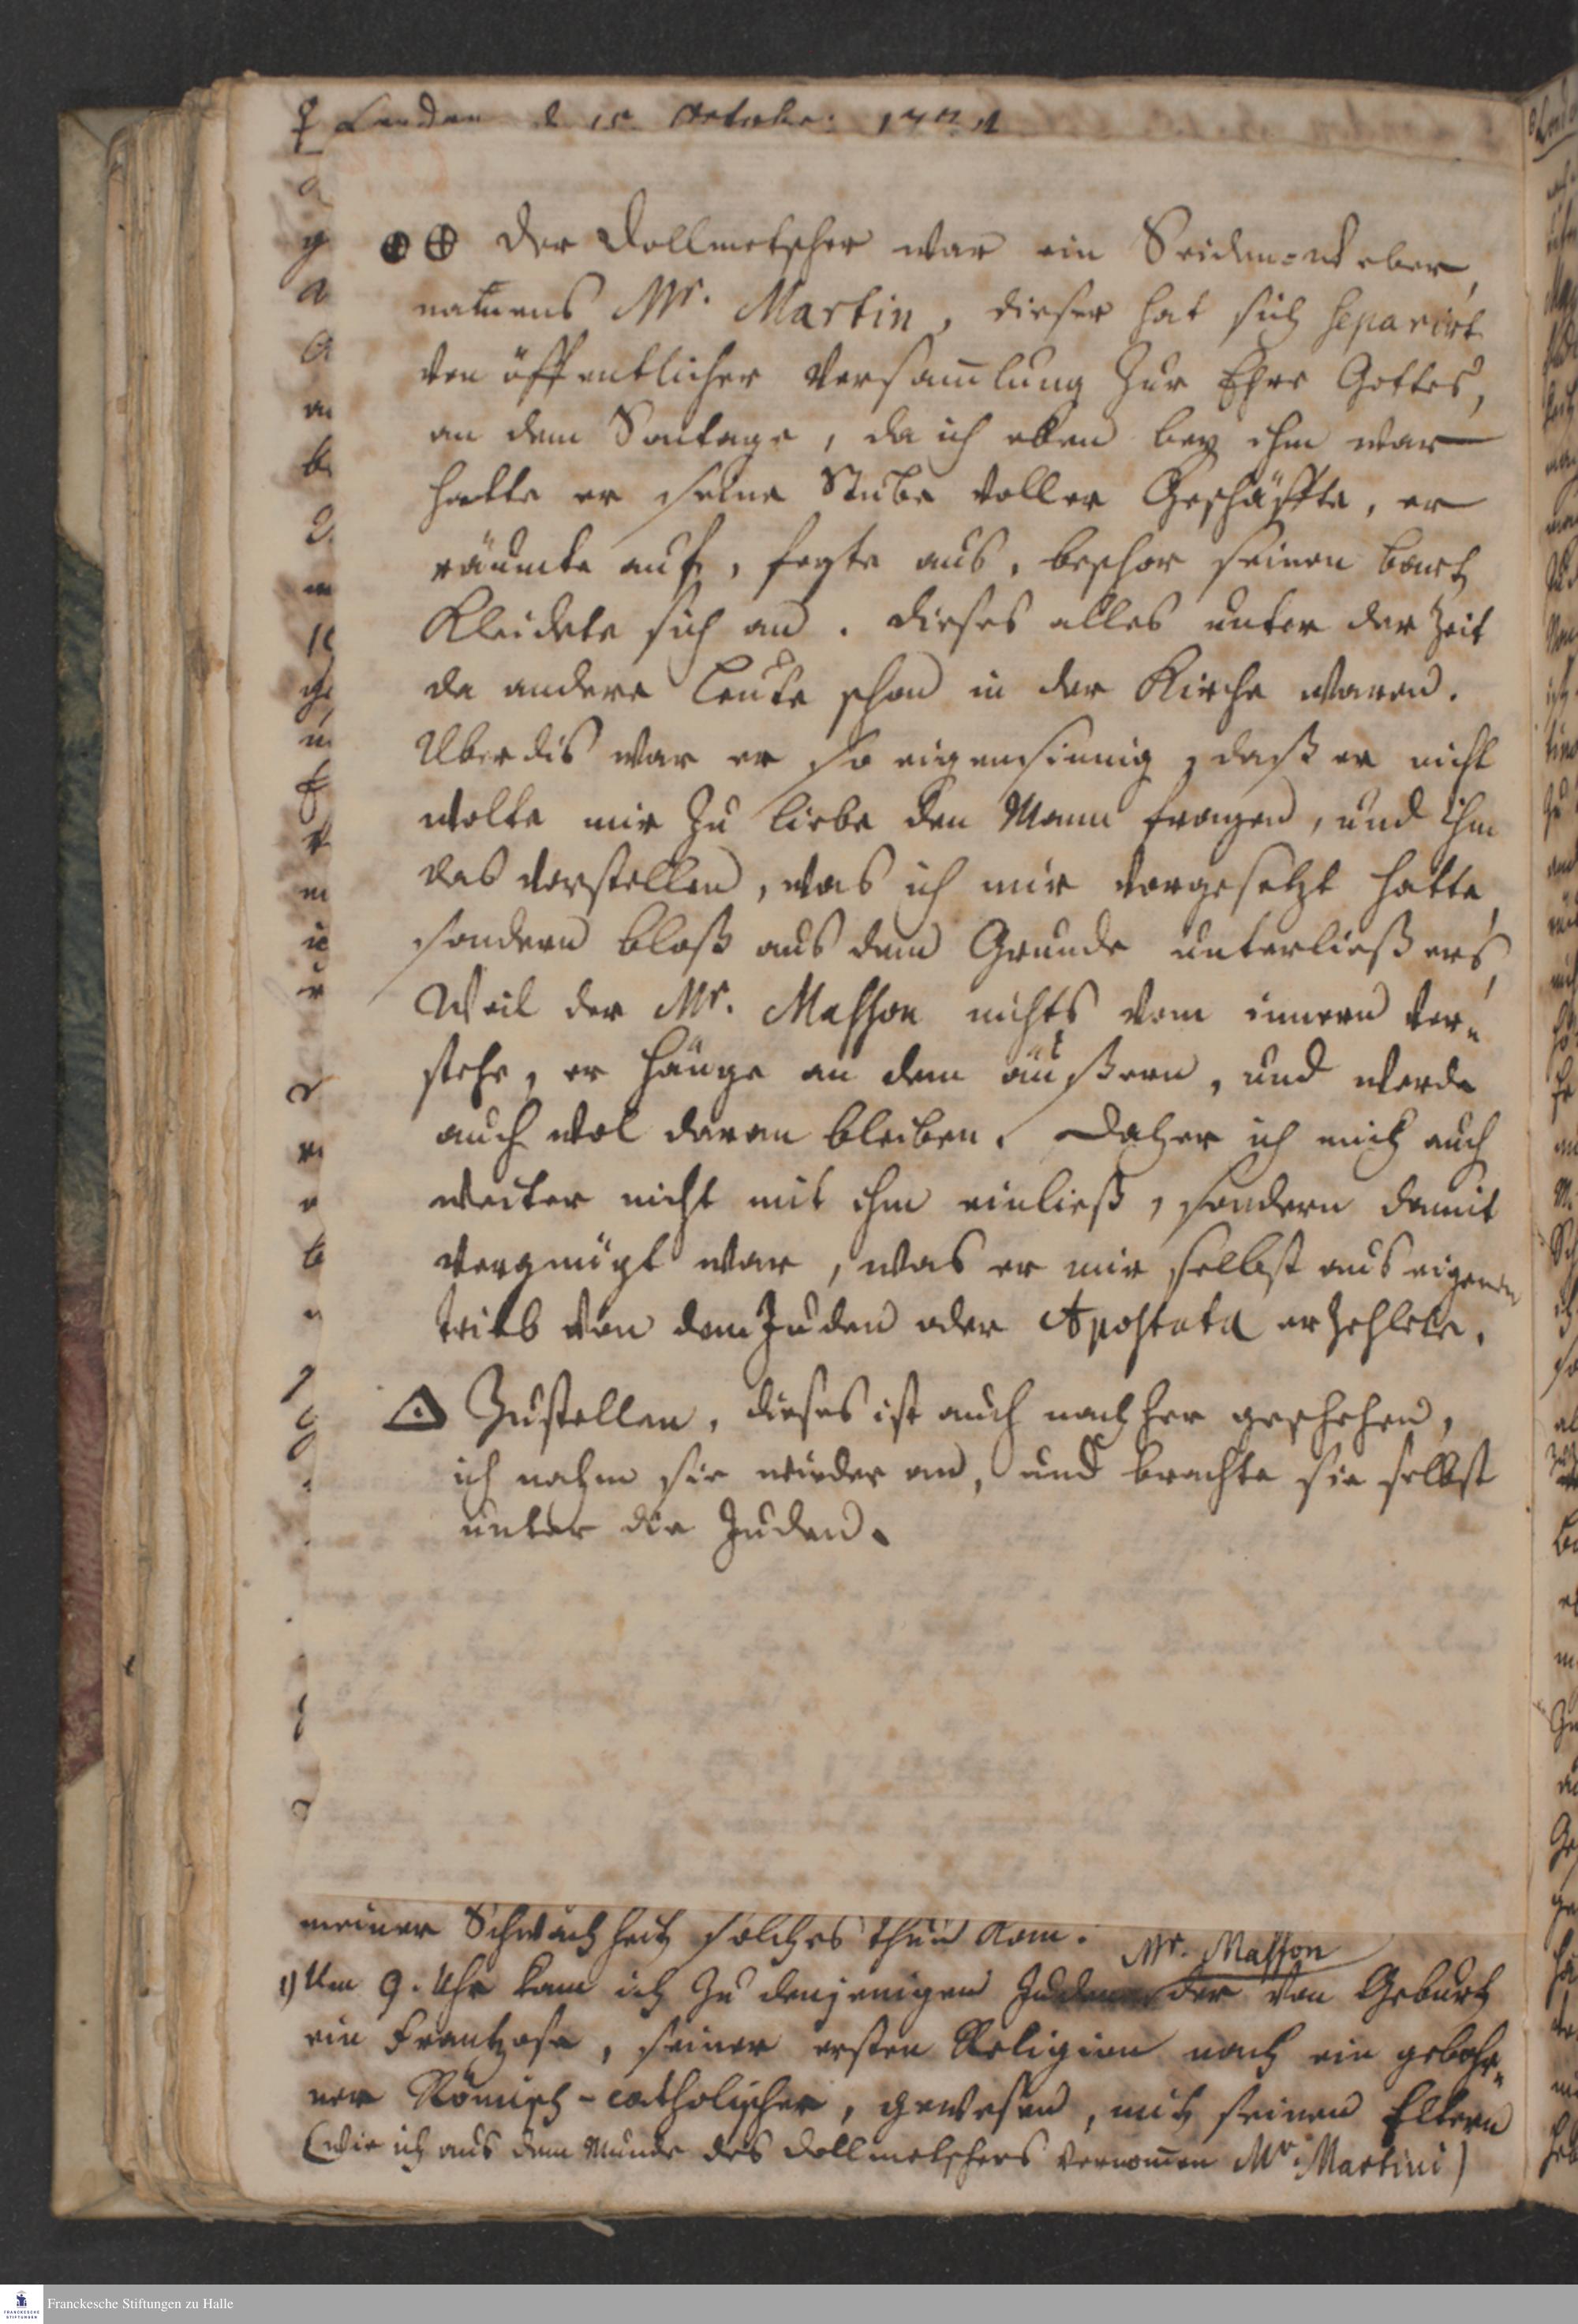 ♀ London d 15 October. 17
⊕⊕ Der Dollmetscher war ein Seiden=Weber,
namens Mr. Martin, dieser hat sich separirt
von öffentlicher Versam̅lung zur Ehre Gottes,
an dem Sontage, da ich eben bey ihm war
hatte er seine Stube voller Geschäffte, er
räumte auf, fegte aus, beschor seinen barth
Kleidete sich an. dieses alles unter der Zeit
da andere Leute schon in der Kirche waren.
Uber dis war er so eigensinnig, daß er nicht
wolte mir zu liebe den Mann fragen, und ihm
das vorstellen, was ich mir vorgesetzt hatte,
sondern bloß aus dem Grunde unterließ ers,
Weil der Mr. Masson nichts vom innern ver=
stehe, er hänge an dem äußern, und werde
auch wol daran bleiben. Daher ich mich auch
weiter nicht mit ihm einließ, sondern damit
vergnügt war, was er mir selbst aus eigenem
trieb von dem Juden oder Apostata erzehlete.
Zustellen, dieses ist auch nach her geschehen,
ich nahm sie wieder an, und brachte sie selbst
unter die Juden.
meiner Schwachheit solches thun kan.
Mr. Masson
1) Um 9. Uhr kam ich zu denjenigen Juden der von Geburth
ein Frantzose, seiner ersten Religion nach ein gebohr=
ner Römisch-catholischer, gewesen, mit seinen Eltern
(wie ich aus dem Munde des Dollmetschers vernom̅en Mr. Martini)
Franckesche Stiftungen zu Halle